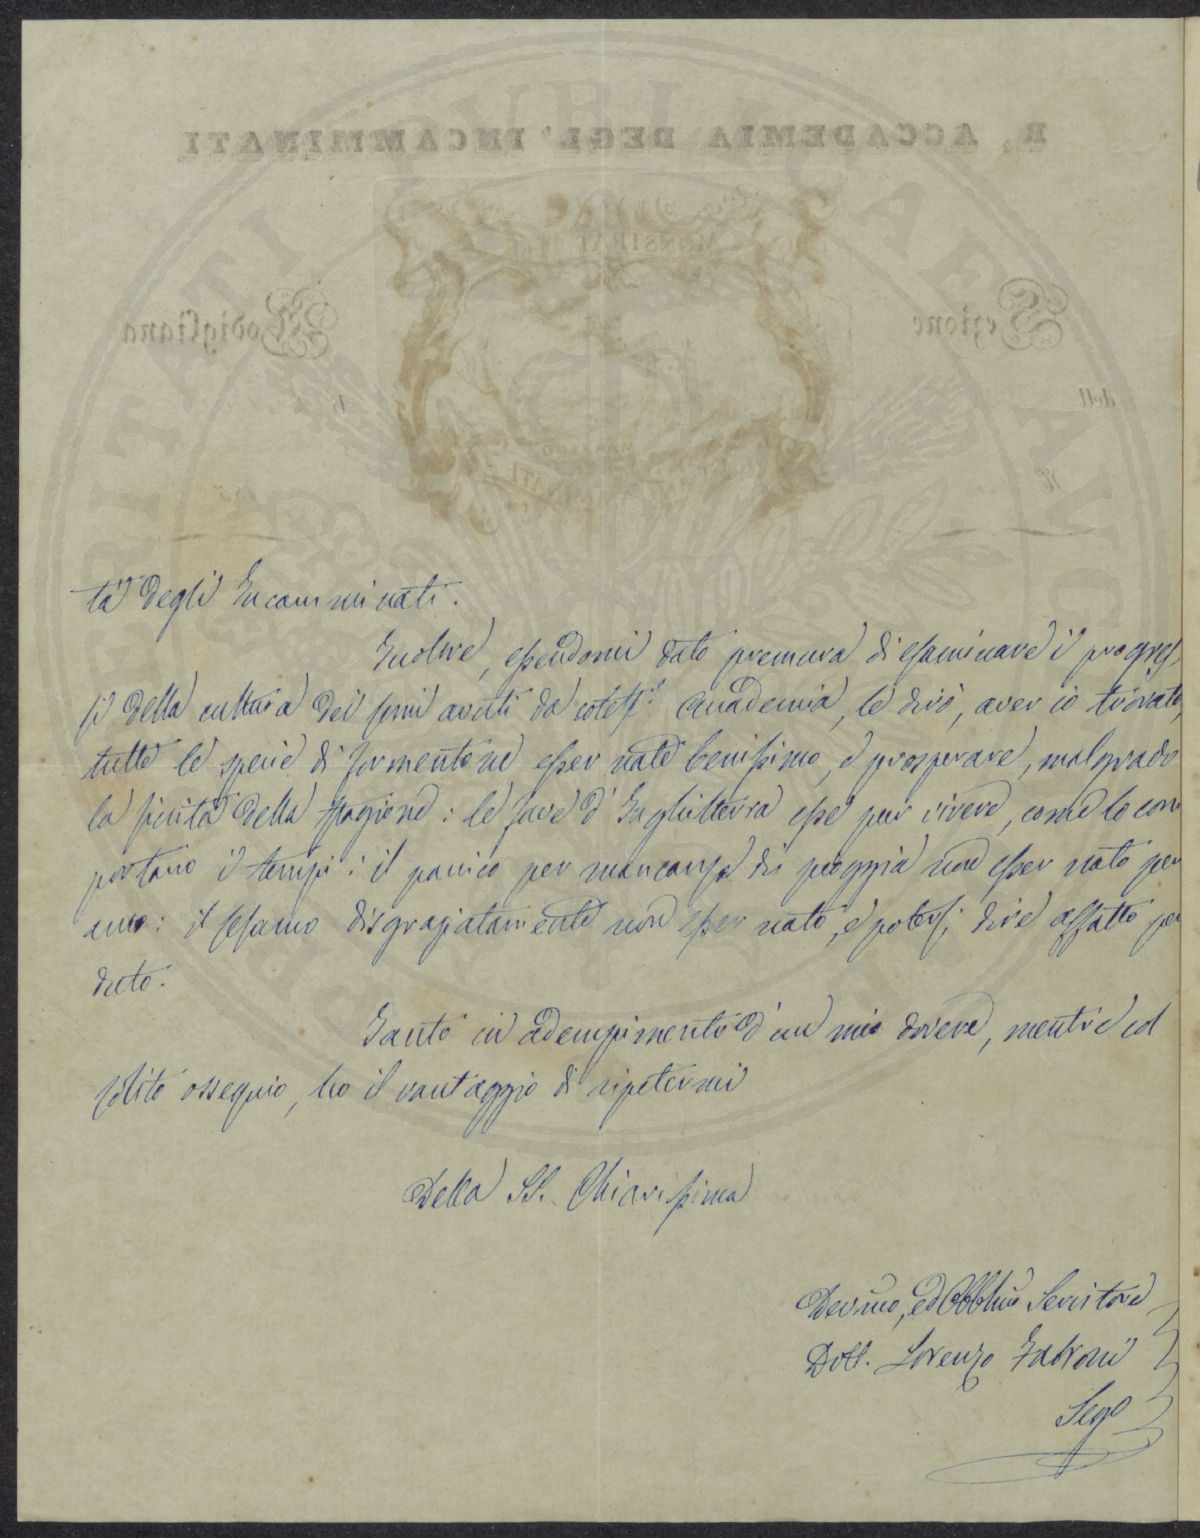 R. ACCADEMIA DEGL' INCAMMINATI
MONSTRAT ITER
Sezione Modigliana
dell
tà degli Incamminati.
Inoltre, essendomi dato premura di esaminare i progres-
si della cultura dei semi avuti da cotest.ª Accademia, le dirò, aver io trovato,
tutte le specie di formentone esser nate benissimo, e prosperare, malgrado
la siccità della stagione: le fave d'Inghilterra esse pur vivere, come lo com
portano i tempi: il panico per mancanza di pioggia non esser nato per
anco: il sesamo disgraziatamente non esser nato, e potersi dire affatto per
duto.
Tanto in adempimento d'un mio dovere, mentre col
solito ossequio, ho il vantaggio di ripetermi
Della SS. Chiarissima
Devmo, ed Obblmo Servitore
Dott. Lorenzo
Segº